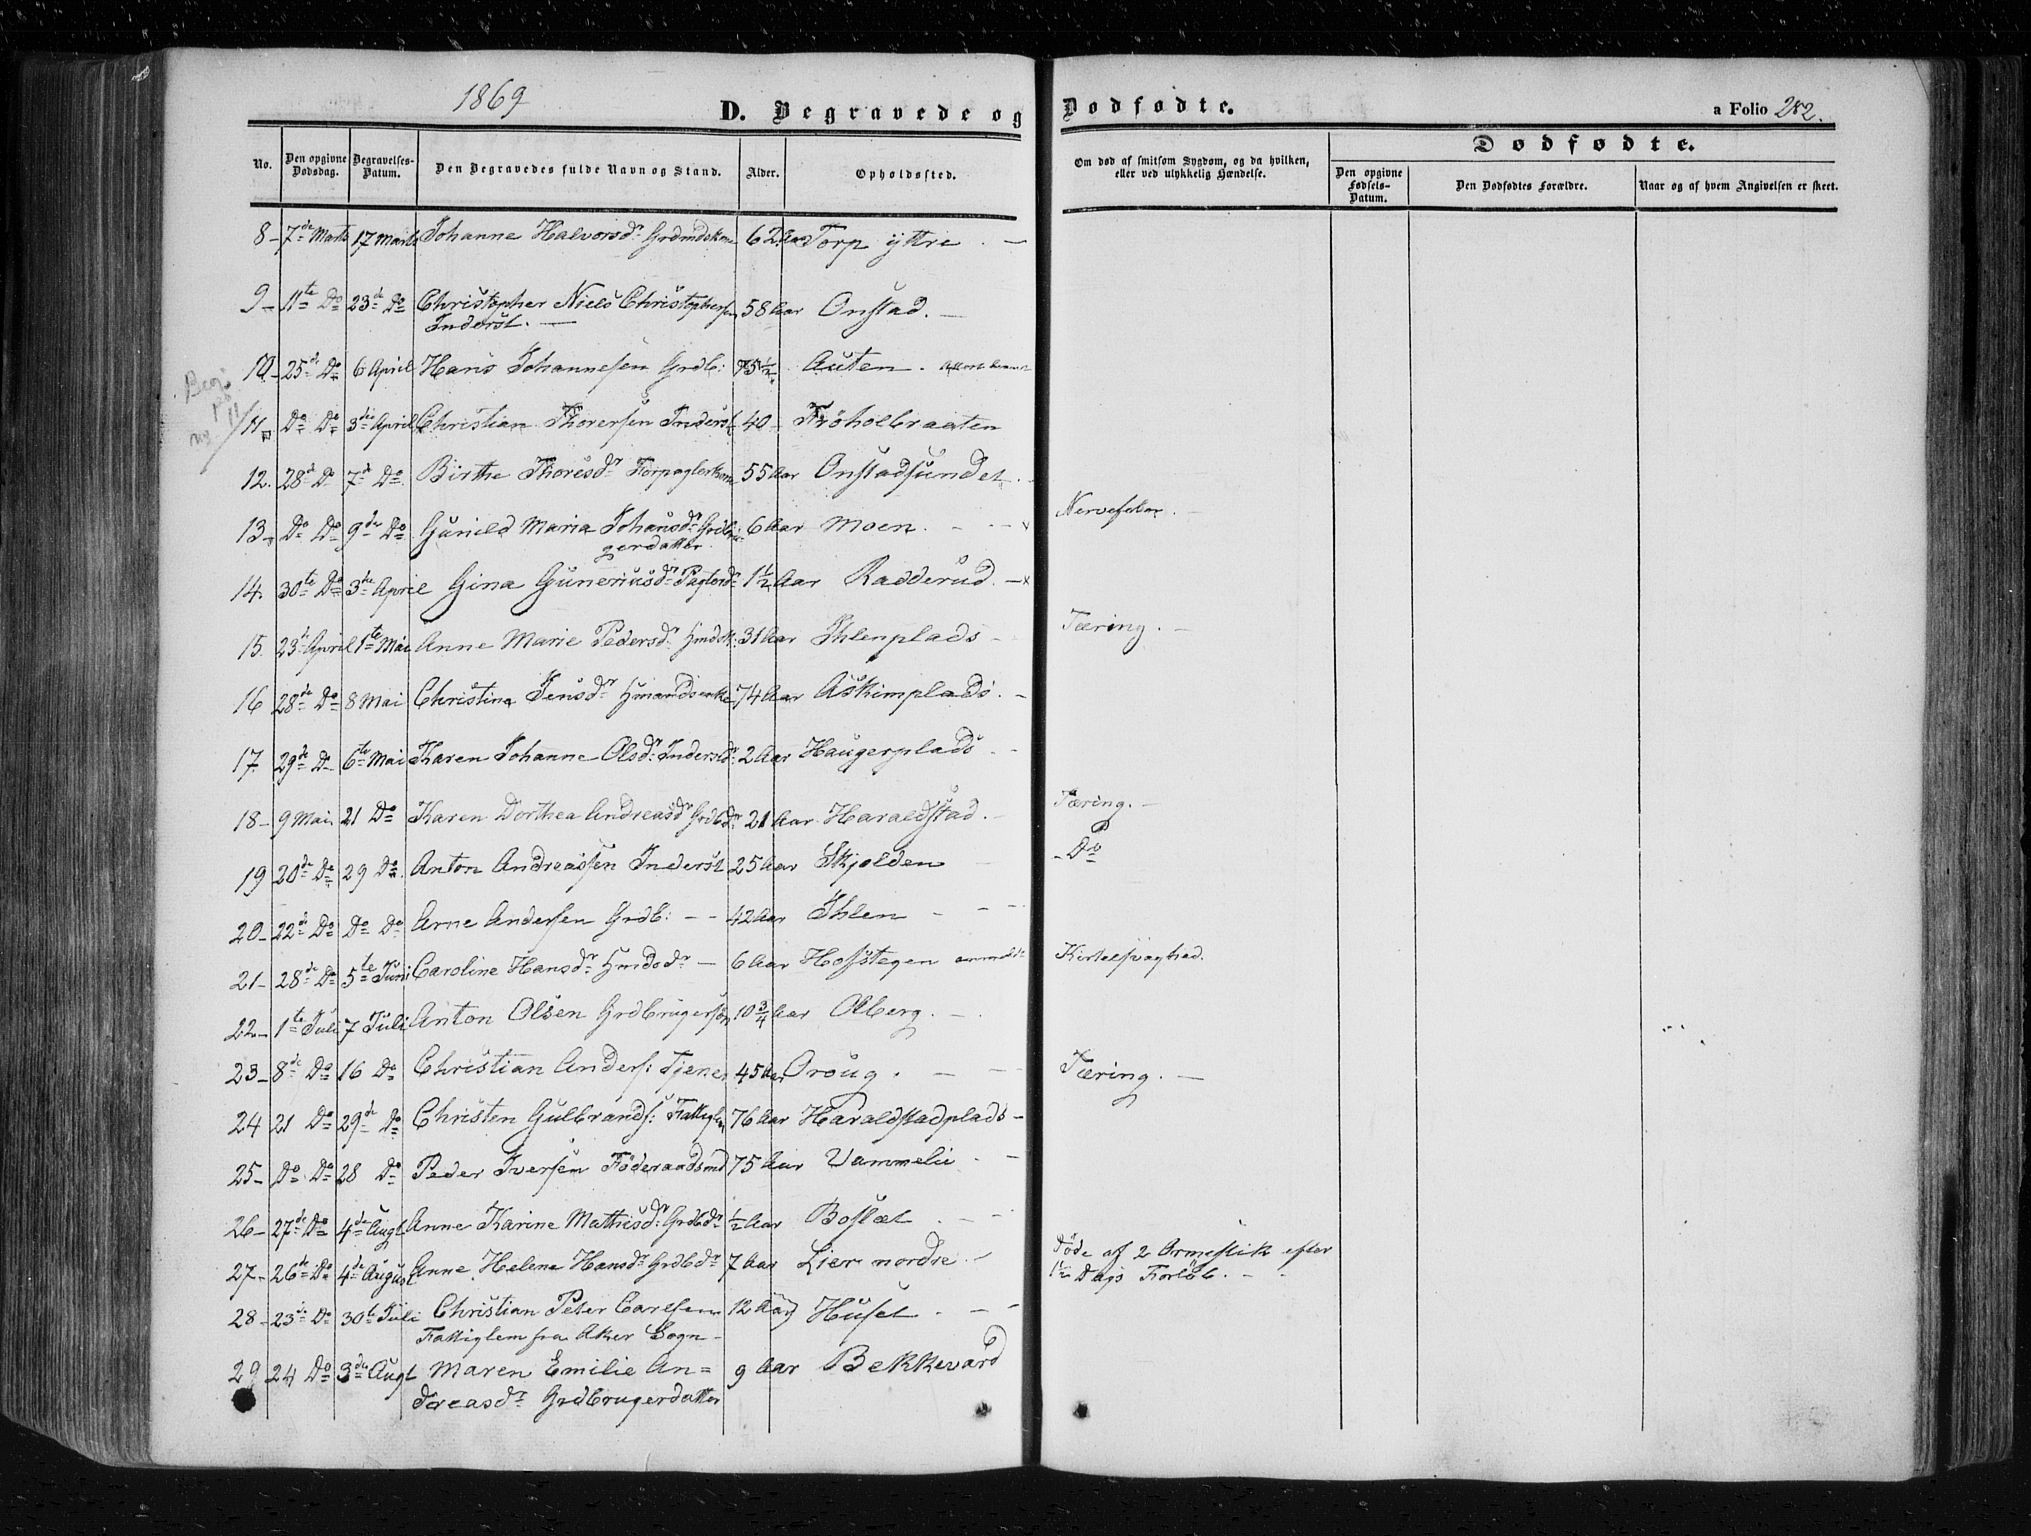 1869
D. Begravede og Dødfødte.
a Folio 282.
No. Den opgivne Dødsdag. Begravelses-Datum. Den Begravedes fulde Navn og Stand. Alder. Opholdssted. Om død af smitsom Sygdom, og da hvilken, eller ved ulykkelig Hændelse. Dødfødte. Den opgivne Fødsels-Datum. Den Dødfødtes Forældre. Naar og af hvem Angivelsen er skeet.
8 - 7de Marts 17 Marts Johanne Halvorsdr Grdmdskone 62 Aar Torp yttre . -
9 - 11te Do 23de Do Christopher Niels Christophersen 58 Aar Onstad. -
Inderst. -
10 - 25de Do 6 April Hans Johannesen Grdb: 75 1/2 Auten .
11 Do Do 3die April Christian Thorersen Inderst 40 - Frøholbraaten
12. 28de Do 7de Do Birthe Thoresdr Forpagterkone 55 Aar Onstadsundet.
13 - Do Do 9de Do Gunild Maria Johansdr Grdbru- 6 Aar Moen. - Nervefeber . -
gerdatter
14. 30te Do 3die April Gina Guneriusdr Pagterdr 1 1/2 Aar Radderud. -
15. 23de April 1te Mai Anne Marie Pedersdr Hmdsk: 31 Aar Ihlenplads - Tæring. -
16 28de Do 8 Mai Christina Jensdr Hmandsenke 74 Aar Askimplads. -
17. 29de Do 6te Mai Karen Johanne Olsdr: Inderstdr 2 Aar Haugerplads -
18 - 9 Mai 21 Do Karen Dorthea Andreasdr Grdbdr 21 Aar Haraldstad. - Tæring. -
19 20de Do 29 Do Anton Andreassen Inderst 25 Aar Skjolden - Do
20 - 22de Do Do Do Arne Andersen Grdb: - - 42 Aar Ihlen - - -
21 - 28de Do 5te Juni Caroline Hansdr Hmdsdr - 6 Aar Hofstegen Kirtelsvaghed.
22 - 1te Juli 7 Juli Anton Olsen Grdbrugersøn 10 3/4 Aar Olberg. -
23 - 8de Do 16 Do Christian Anders: Tjener 45 Aar Oroug. - Tæring. -
24 21 Do 29de Do Christen Gulbrands: Fattiglem 76 Aar Haraldstadplads -
25 - Do Do 28 Do Peder Iversen Føderaadsmd 75 Aar Vammeli -
26 - 27de Do 4de Augt Anne Karine Mathisdr: Grdbdr 1/2 Aar Boslet . -
27 - 26de Do 4de August Anne Helene Hansdr Grdbdr 7 Aar Lier nordre - Døde af 2 Ormestik efter
1 1/2 Dags Forløb. -
28 - 23de Do 30te Juli Christian Peter Carlsen 12 Aar Huset . -
Fattiglem fra Aker Sogn -
29 24 Do 3die Augt Maren Emilie An= 9 Aar Bekkevard
dreasdr Grdbrugerdatter